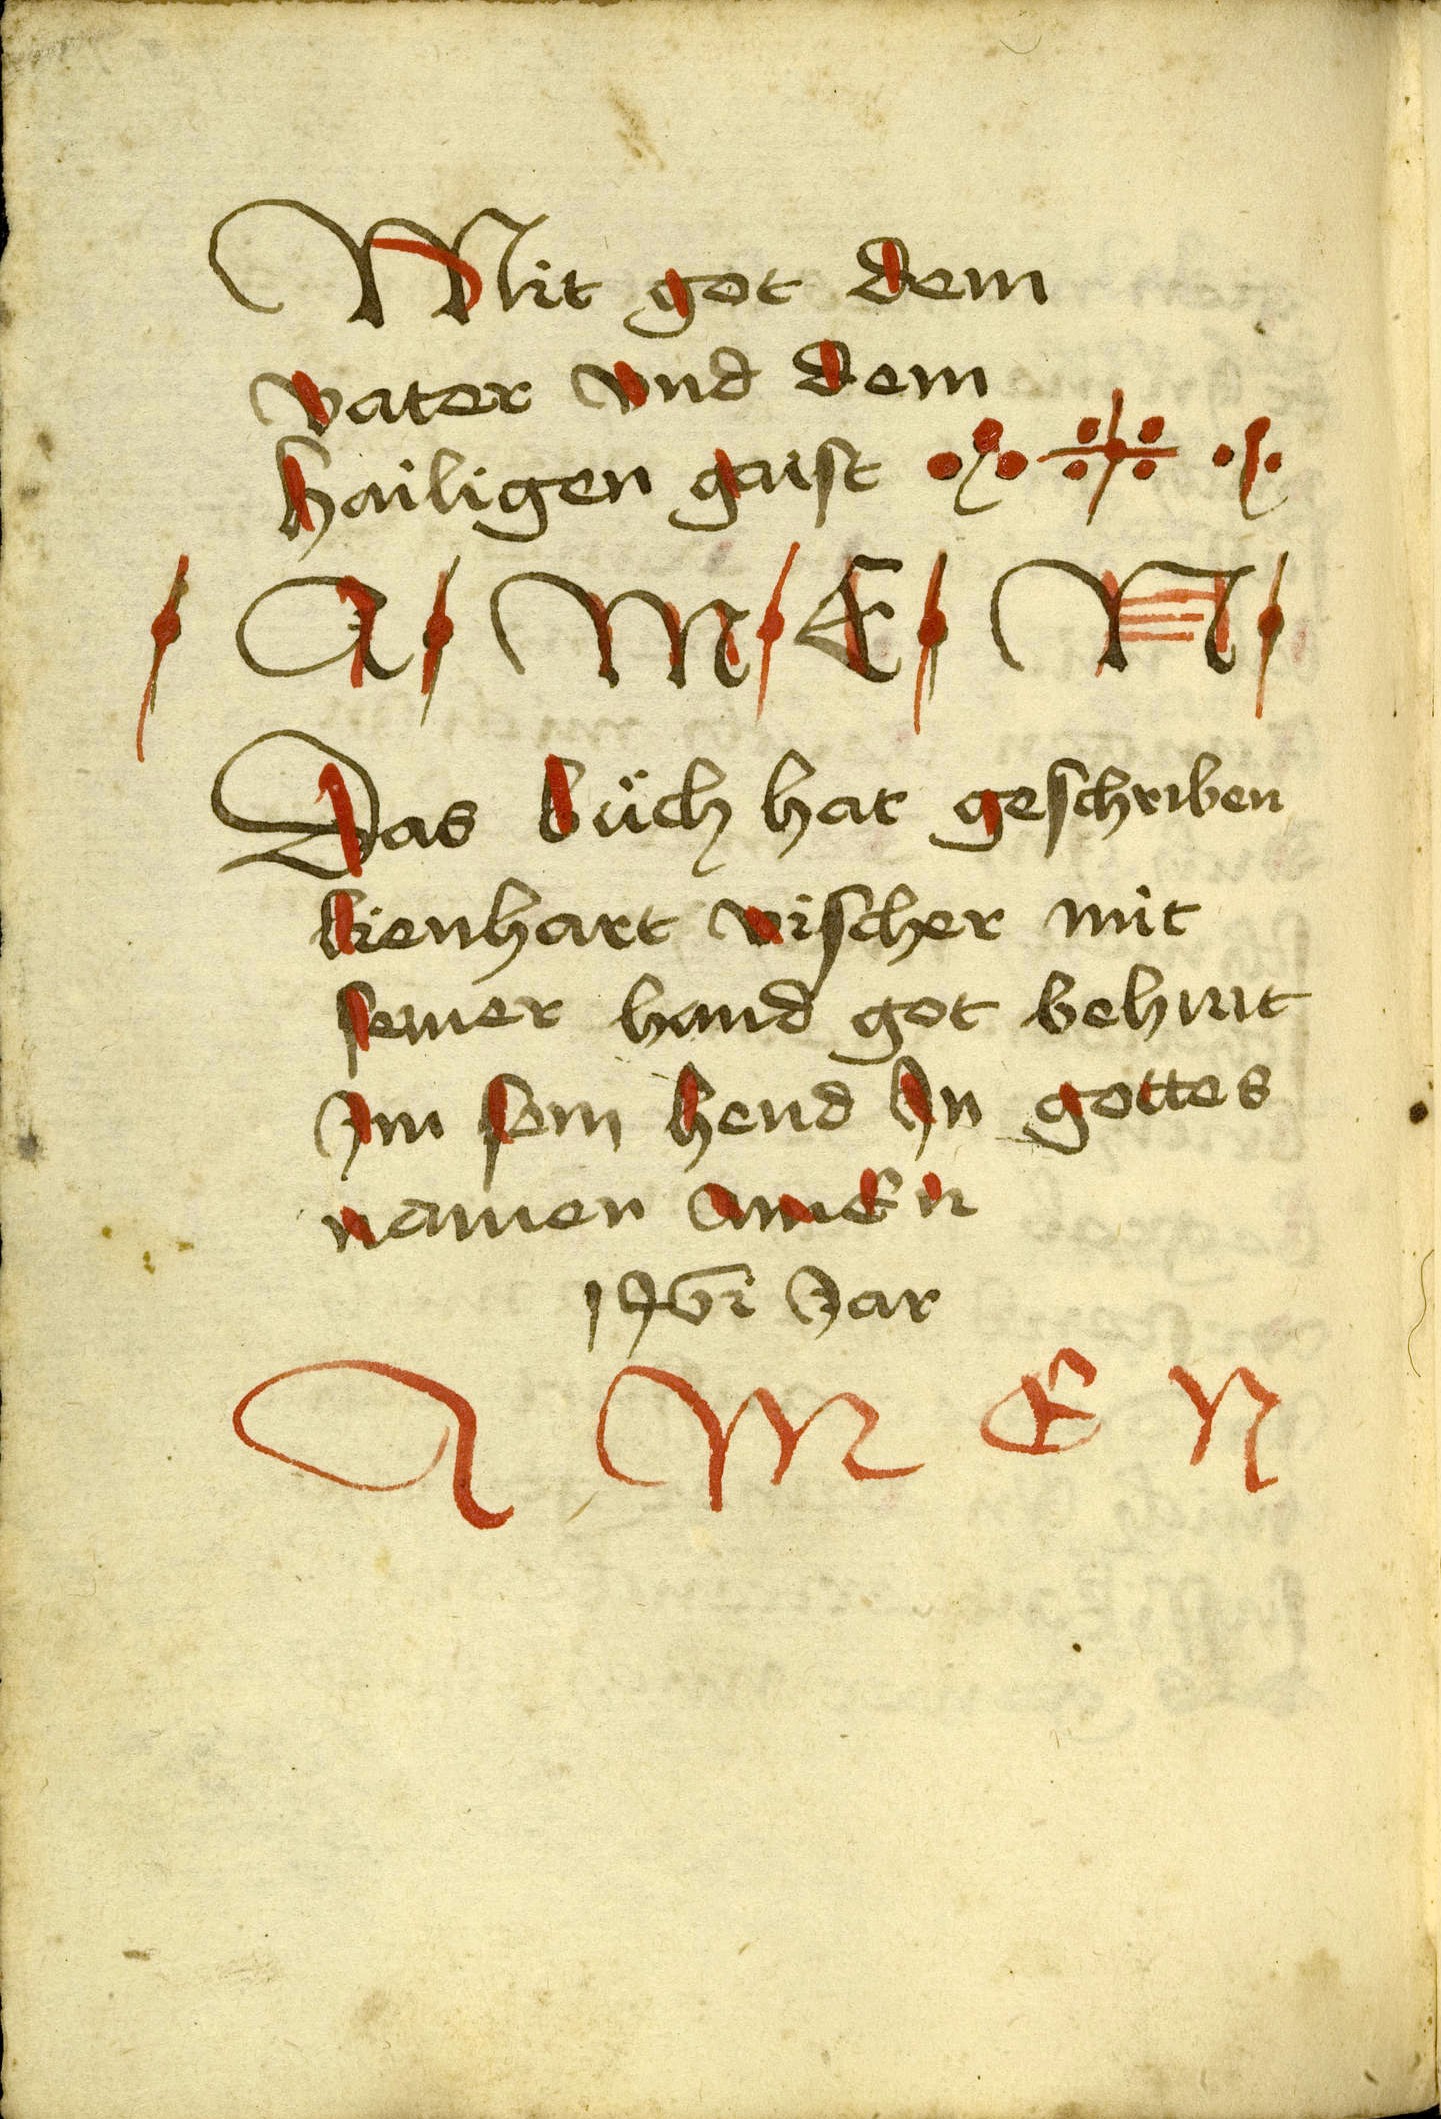 Mit got dem
vater vnd dem
hailigen gaist
A M E N
Das büch hat geschriben
lienhart vischer mit
seiner hand got behuit
Im sein hend In gottes
namen amEn
Jar
A M E N